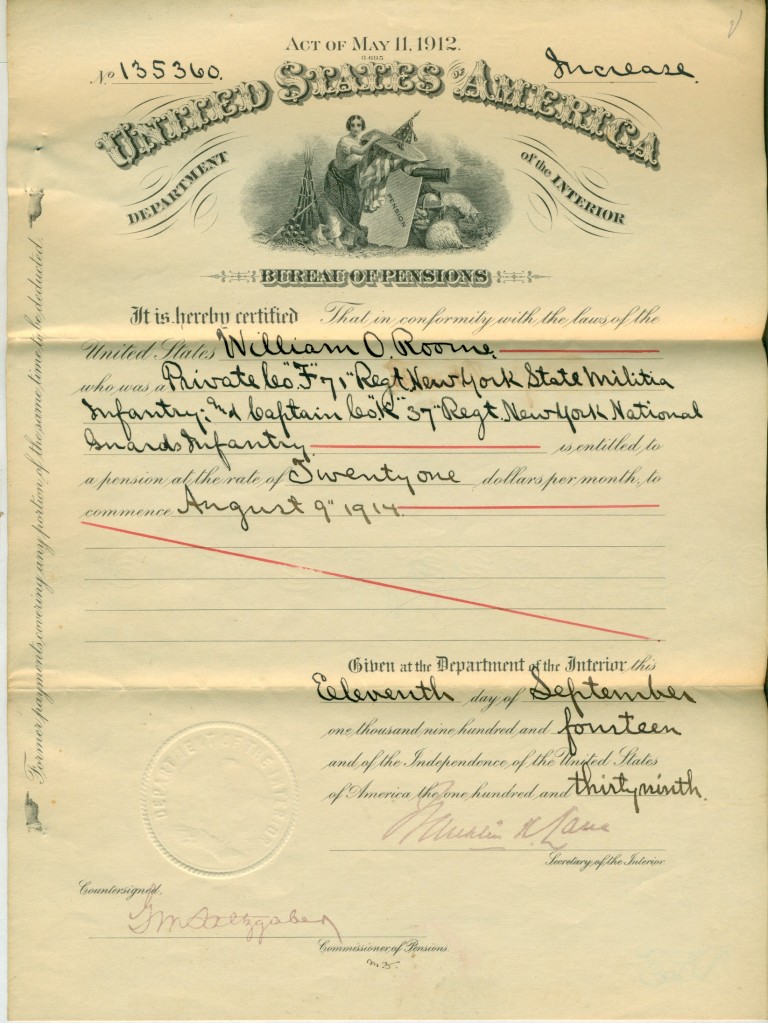 ACT OF MAY 11, 1912.
3-695
No 135360.
Increase.
UNITED STATES OF AMERICA
DEPARTMENT of the INTERIOR
PENSION
BUREAU OF PENSIONS
It is hereby certified That in conformity with the laws of the
United States William O. Roome.
who was a Private Co. "F" 71" Regt. New York State Militia
Infantry; and Captain Co. "K" 37" Regt. New York National
Guards Infantry is entitled to
a pension at the rate of Twenty one dollars per month, to
commence August 9" 1914.
Given at the Department of the Interior this
Eeleventh day of September
one thousand nine hundred and fourteen
and of the Independence of the United States
of America the one hundred and thirty ninth.
Franklin K. Lane
Secretary of the Interior
Countersigned,
G M Saltzgaber
Commissioner of Pensions
Former payments covering any portion of the same time to be deducted.